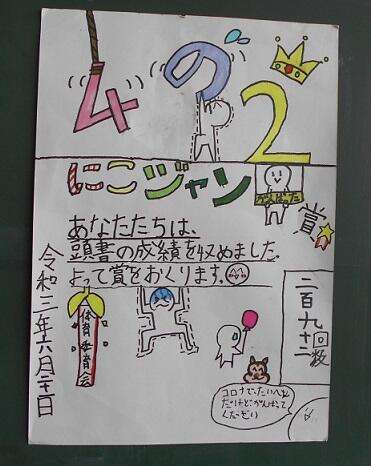 4の2
にこジャン
がんばった
賞
あなたたちは、
頭書の成績を収めました。
よって賞をおくります。
二百九十二
回数
体育委員会
令和三年六月二十一日
コロナでたいへん
だけどがんばって
ください